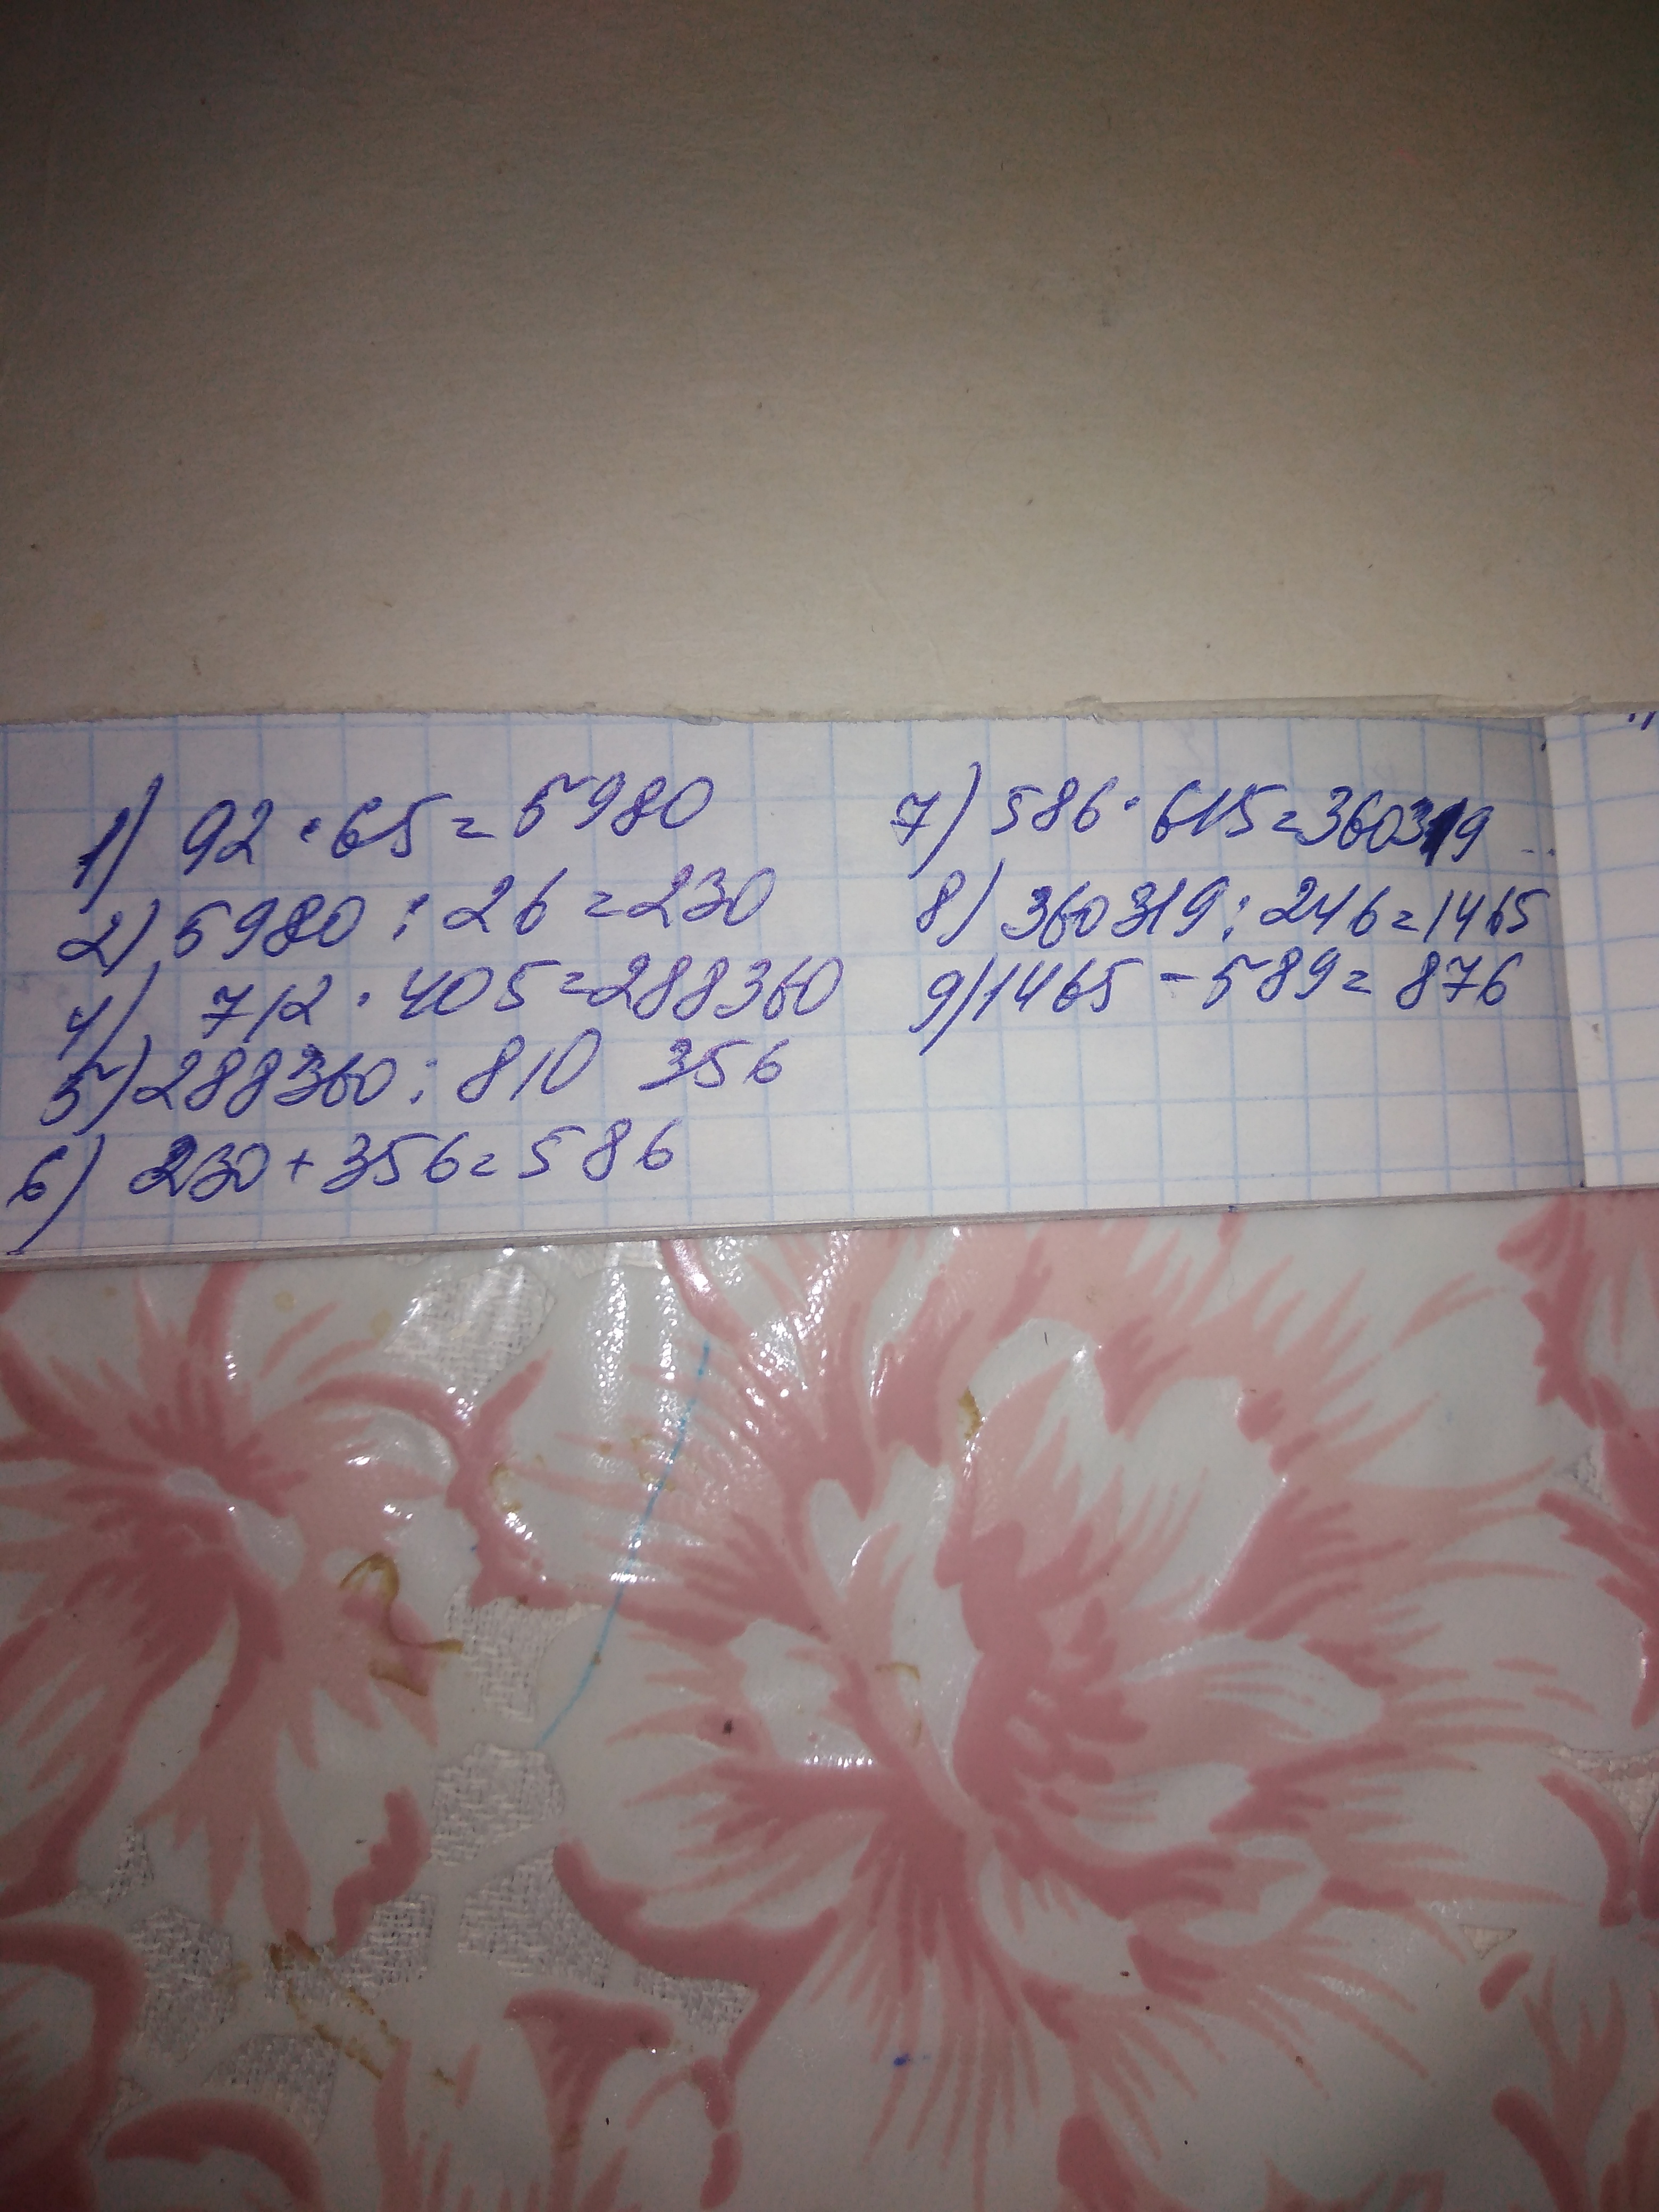 1) 92 · 65 = 5980
2) 5980 : 26 = 230
4) 712 · 405 = 288360
5) 288360 : 810 356
6) 230 + 356 = 586
7) 586 · 615 = 360319
8) 360319 : 246 = 1465
9) 1465 - 589 = 876